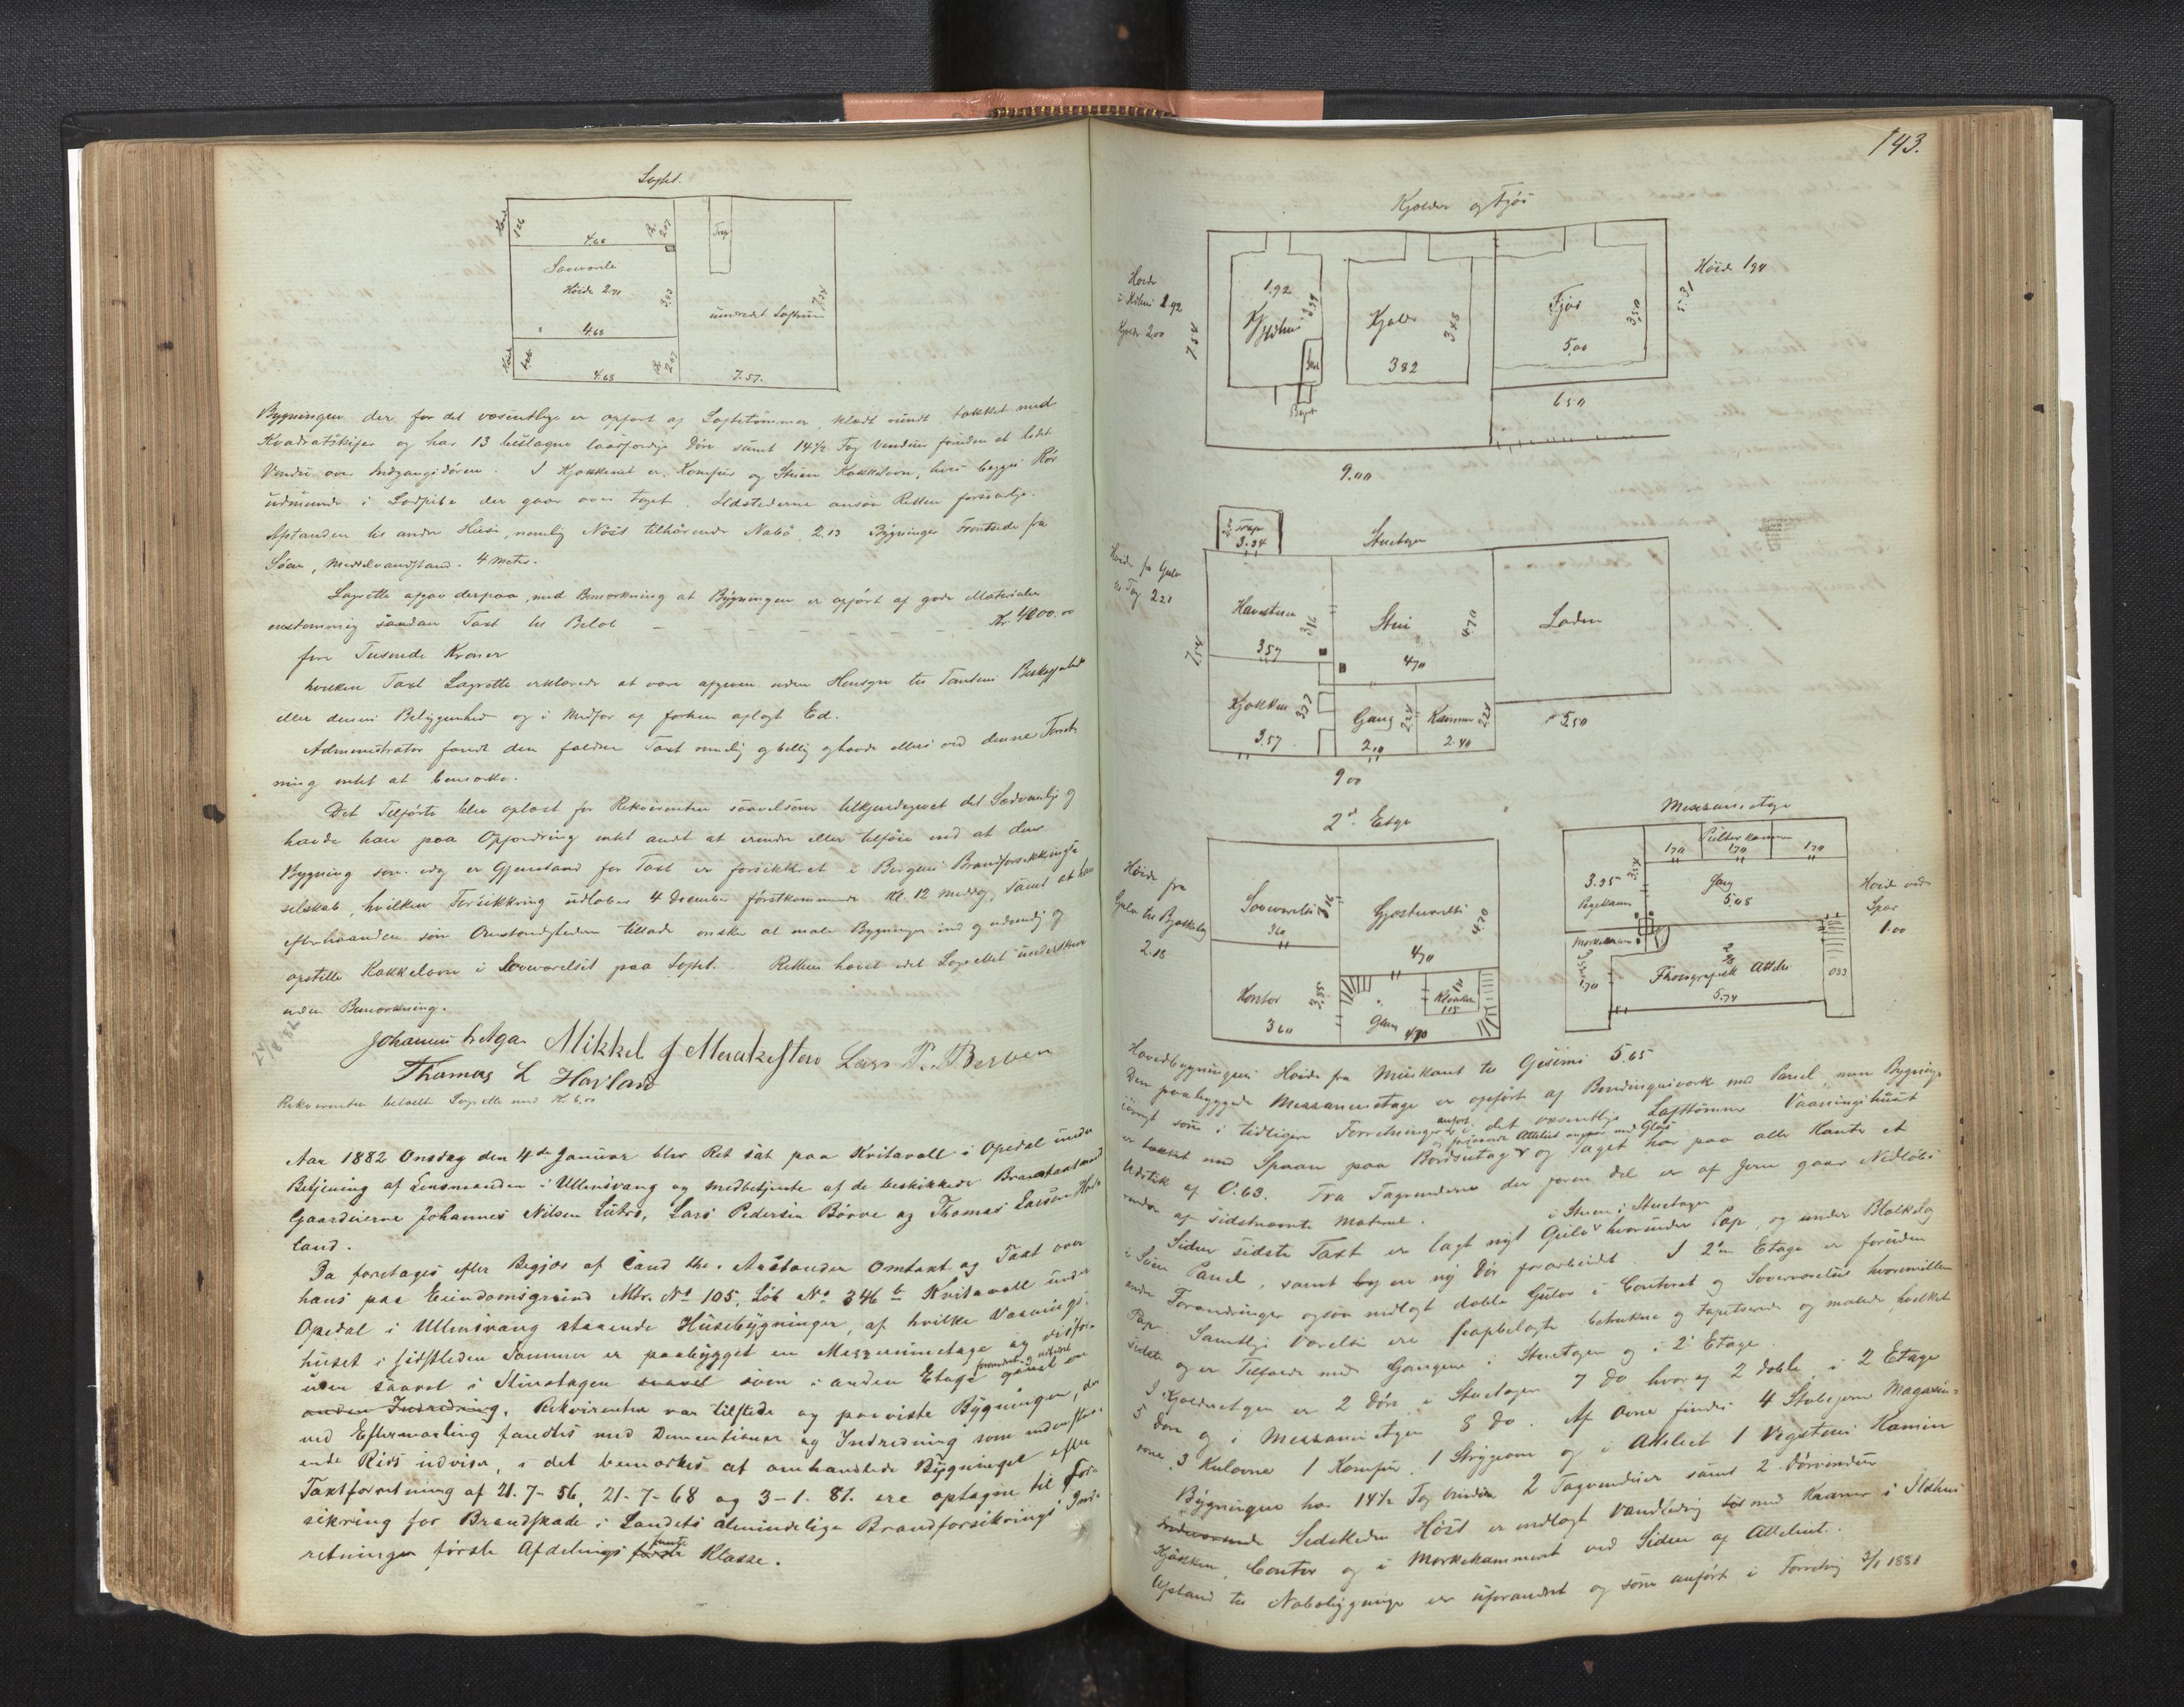 Loftet.
Høide 1.26
4.68
Br. 2.07
Trap
Soveværelse
Høide 2.71
3.43
4.68
uindredet Loftrum
7.54
Høide 1.26
4.68
Br. 2.07
7.57.
Bygningen der for det væsentlige er opført af Laftetømmer, klædt rundt, takket med
Kvadratskifer og har 13 beslagne laasfærdige Døre samt 14½ Fag Vinduer foruden et lidet
Vindu over Indgangsdøren. I Kjøkkenet er Komfur og Stuen Kakkelovn, hvis begge Rør
udmunde i Ladpibe der gaar over Taget. Ildstederne ansaa Retten forsvarlige.
Afstanden til andre Huse, nemlig Nøst tilhørende Nabo, 2.13 Bygningens Frontside fra
Søen, Middelvandstand. 4 Meter.
Lagrette afgav derpaa, med Bemærkning at Bygningen er opført af gode Materialer
enstemmig saadan Taxt til Beløb — — — — — — Kr. 4000.00
fire Tusende Kroner
hvilken Taxt Lagrette erklærede at være afgiven uden Hensyn til Tomtens Beskaffenhed
eller dennes Beliggenhed og i Medfør af forhen aflagt Ed.
Administrator fandt den faldne Taxt rimelig og billig og havde ellers ved denne Forret-
ning intet at bemærke.
Det Tilførte blev oplæst for Rekvirenten saavelsom tilkjendegivet det Sædvanlige og
havde han paa Opfordring intet andet at erindre eller tilføie end at den
Bygning som idag er Gjenstand for Taxt er forsikkret i Bergens Brandforsikkrings-
selskab, hvilken Forsikkring udløber 4 December førstkommende Kl. 12 Middag, samt at han
efterhaanden som Omstændighederne tillade ønsker at male Bygningen ind og udvendig og
opstille Kakkelovn i Soveværelset paa Loftet. Retten hævet idet Lagrettet underskrev
uden Bemærkning.
24/8 82
Johannes L Aga Mikkel J Mæakestøvo Lars P. Berven
Thomas L Hovland
Rekvirenten betalte Lagrette med Kr. 6.00
Aar 1882 Onsdag den 4de Januar blev Ret sat paa Kvitavoll i Opedal under
Betjening af Lensmanden i Ullensvang og medbetjente af de beskikkede Brandtaxtmænd
Gaardeierne Johannes Nilsen Lutro, Lars Pedersen Børve og Thomas Larsen Hov-
land.
Da foretages efter Begjær af Cand the. Austander Omtaxt og Taxt over
hans paa Eiendomsgrund Mtr. No 105, Løb No 346 b Kvitavoll under
Opedal i Ullensvang staaende Husebygninger, af hvilke Vaanings-
huset i sidstleden Sommer er paabygget en Mezzaninetage og
saavel i Stueetagen som i anden Etage forandret
anden Indredning. Rekvirenten var tilstede og paaviste Bygningen, der
ved Eftermaaling fandtes med Dimentioner og Indredning som nedenstaa-
ende Rids udviser, i det bemærkes at omhandlede Bygninger efter
Taxtforretning af 21. 7- 56, 21. 7- 68 og 3- 1. 81. ere optagne til For-
sikring for Brandskade i Landets almindelige Brandforsikrings Ind-
retninger første Afdelings første Klasse.
143.
Kjælder og Fjøs
Høide
i Ildhus 1.92
Kjælder 2.00
7.54
1.92
Ildhus
3.39
Bagt
Kjelder
3.48
3.82
Fjøs
3.50
5.00
Høide 1.94
5.31
6.50
9.00
Trap
3.24
Stueetagen
Høide fra Gulv
til Tag 2.21
7.54
Havestuen
3.16
3.57
Stue
4.70
4.70
Laden
Kjøkken
3.57
Gang
2.24
2.10
Kammer
2.24
2.40
5.50
9.00
2d Etage
Høide fra
Gulv til Bjelkelag
2.18
Soveværelse
3.16
3.60
Gjesteværelse
4.70
4.70
Kontor
3.35
3.60
Gang
4.70
Kloset
1.15
Mezzaninetage
Pulterkammer
1.70 1.70 1.70
3.25
Pigekam.
Gang
5.08
Mørkekam
1.70
Fotografisk Attelie
5.74
0.93
Høide ved
Spær
1.00
Hovedbygningens Høide fra Murkant til Gesims 5.65
Den paabyggede Mezzaninetage er opført af Bindingsværk med Panel, men Bygningen
iøvrigt som i tidligere Forretninger anført i det væsentlige Laftetømmer. Vaaningshuset
er tækket med Spaan paa Bordsutag og Taget har paa alle Kanter et
Udstik af 0.63. Fra Tagrenderne der for en del er af Jern gaar Nedløbs-
render af sidstnævnte Material.
Siden sidste Taxt er lagt nyt Gulv i Stuen i Stueetagen hvorunder Pap, og under Bjelkelag
i Søm Panel, samt en ny Dør forarbeidet. I 2den Etage er foruden
andre Forandringer ogsaa nedlagt doble Gulve i Contoret og Soveværelset hvorimellem
Pap. Samtlige Værelser ere papbelagte betrukne og tapetserede og malede hvilket
sidste og er Tilfælde med Gangene i Stueetagen og i 2d Etage.
I Kjelderetagen er 2 Døre, i Stueetagen 7 do hvoraf 2 doble, i 2 Etage
5 Døre og i Mezzaninetagen 8 do. Af Ovne findes 4 Støbejerns Magasin-
ovne 3 Kulovne 1 Komfur, 1 Strygeovn og i Atteliet 1 Vegstens Kamin
Bygningen har 14½ Fag Vinduer 2 Tagvinduer samt 2 Dørvinduer
Sidstleden Høst er indlagt Vandledning med Kraner i Ildhus
Kjøkken, Contor og i Mørkekammeret ved Siden af Atteliet.
Afstand til Nabobygninger er uforandret og som anført i Forretning 3/1 1881